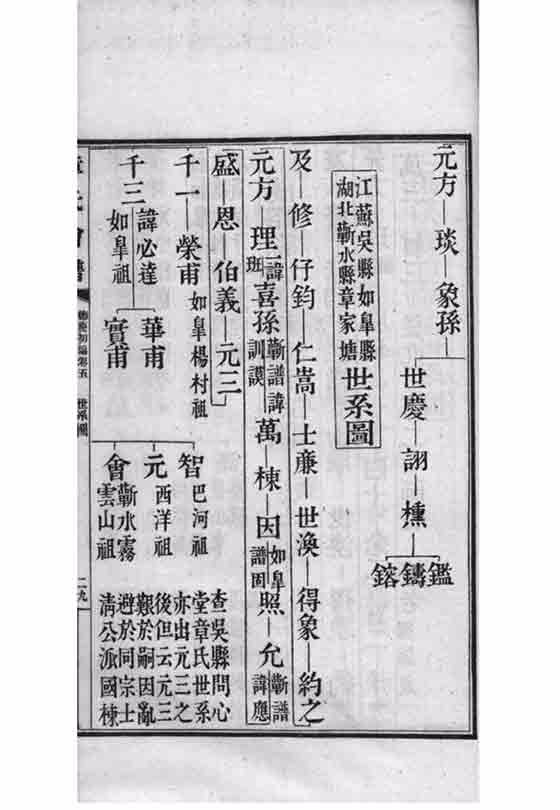 元方 琰 象孫
世慶 詡 櫄
鑑 鑄 鎔
江蘇吳縣如皐縣
湖北蘄水縣章家塘
世系圖
及 修 仔鈞 仁嵩 士廉 世渙 得象 約之
元方 理 一諱班 喜孫 蘄譜諱訓謨 萬 棟 因 如皐譜固 照 允 蘄譜諱應
盛 恩 伯義 元三
千一 榮甫 如皐楊村祖
千三 諱必達 如皐祖
華甫
實甫
智 巴河祖
元 西洋祖
會 蘄水霧雲山祖
查吳縣問心
堂章氏世系
亦出元三之
後但云元三
艱於嗣因亂
避於同宗士
淸公派國棟
世系圖
二九